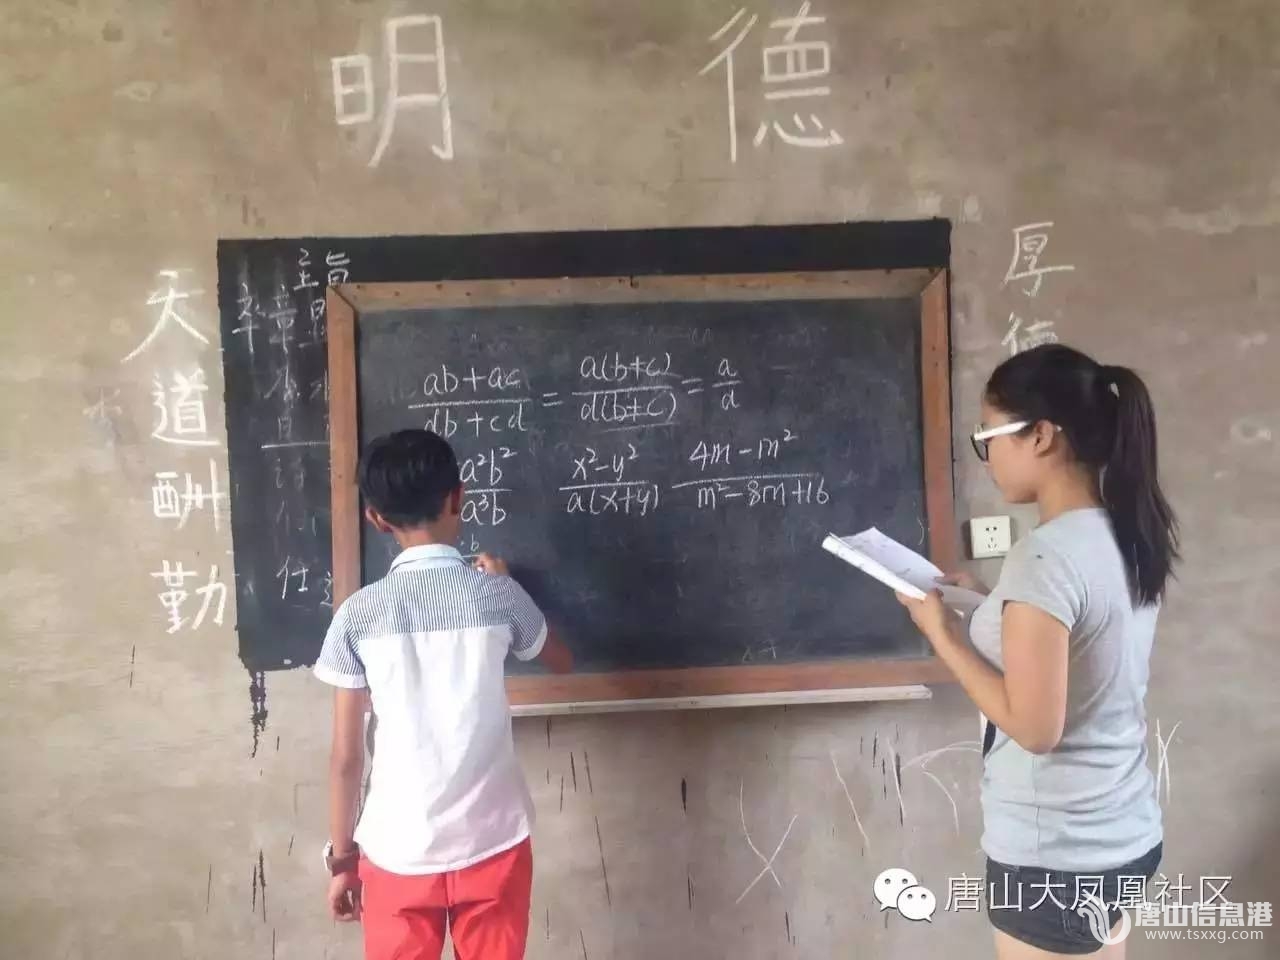 明德
天道酬勤
厚德
主旨
卒章显
仕
ab+ac/db+cd = a(b+c)/d(b+c) = a/d
a²b²/a³b x²-y²/a(x+y) 4m-m²/m²-8m+16
唐山大凤凰社区
唐山信息港
www.tsxxg.com